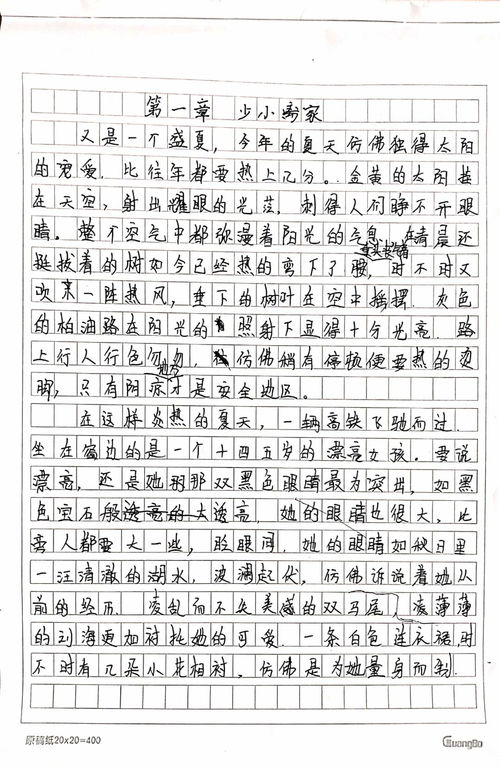 第一章 少小离家
又是一个盛夏，今年的夏天仿佛独得太阳
的宠爱．比往年都要热上几分。金黄的太阳挂
在天空，射出耀眼的光茫，刺得人们睁不开眼
睛。整个空气中都弥漫着阳光的气息．清晨还
挺拔着的树如今已经热的弯下了腰，时不时又
吹来一阵热风，垂下的树叶在空中摇摆．灰色
的柏油路在阳光的照射下显得十分光亮．路
上行人行色匆匆，仿佛稍有停顿便要热的烫
脚，只有阴凉地方才是安全地区。
在这样炎热的夏天，一辆高铁飞驰而过．
坐在窗边的是一个十四五岁的漂亮女孩．要说
漂亮，还是她那双黑色眼睛最为突出，如黑
色宝石般透亮．她的眼睛也很大，比
旁人都要大一些，
她的眼睛如秋日里
一汪清澈的湖水，波澜起伏，仿佛诉说着她从
前的经历．凌乱而不失美感的双马尾，薄薄
的刘海更加衬托她的可爱．一条白色连衣裙，时
不时有几朵小花相衬，仿佛是为她量身而制．
原稿纸20x20=400
GuangBo